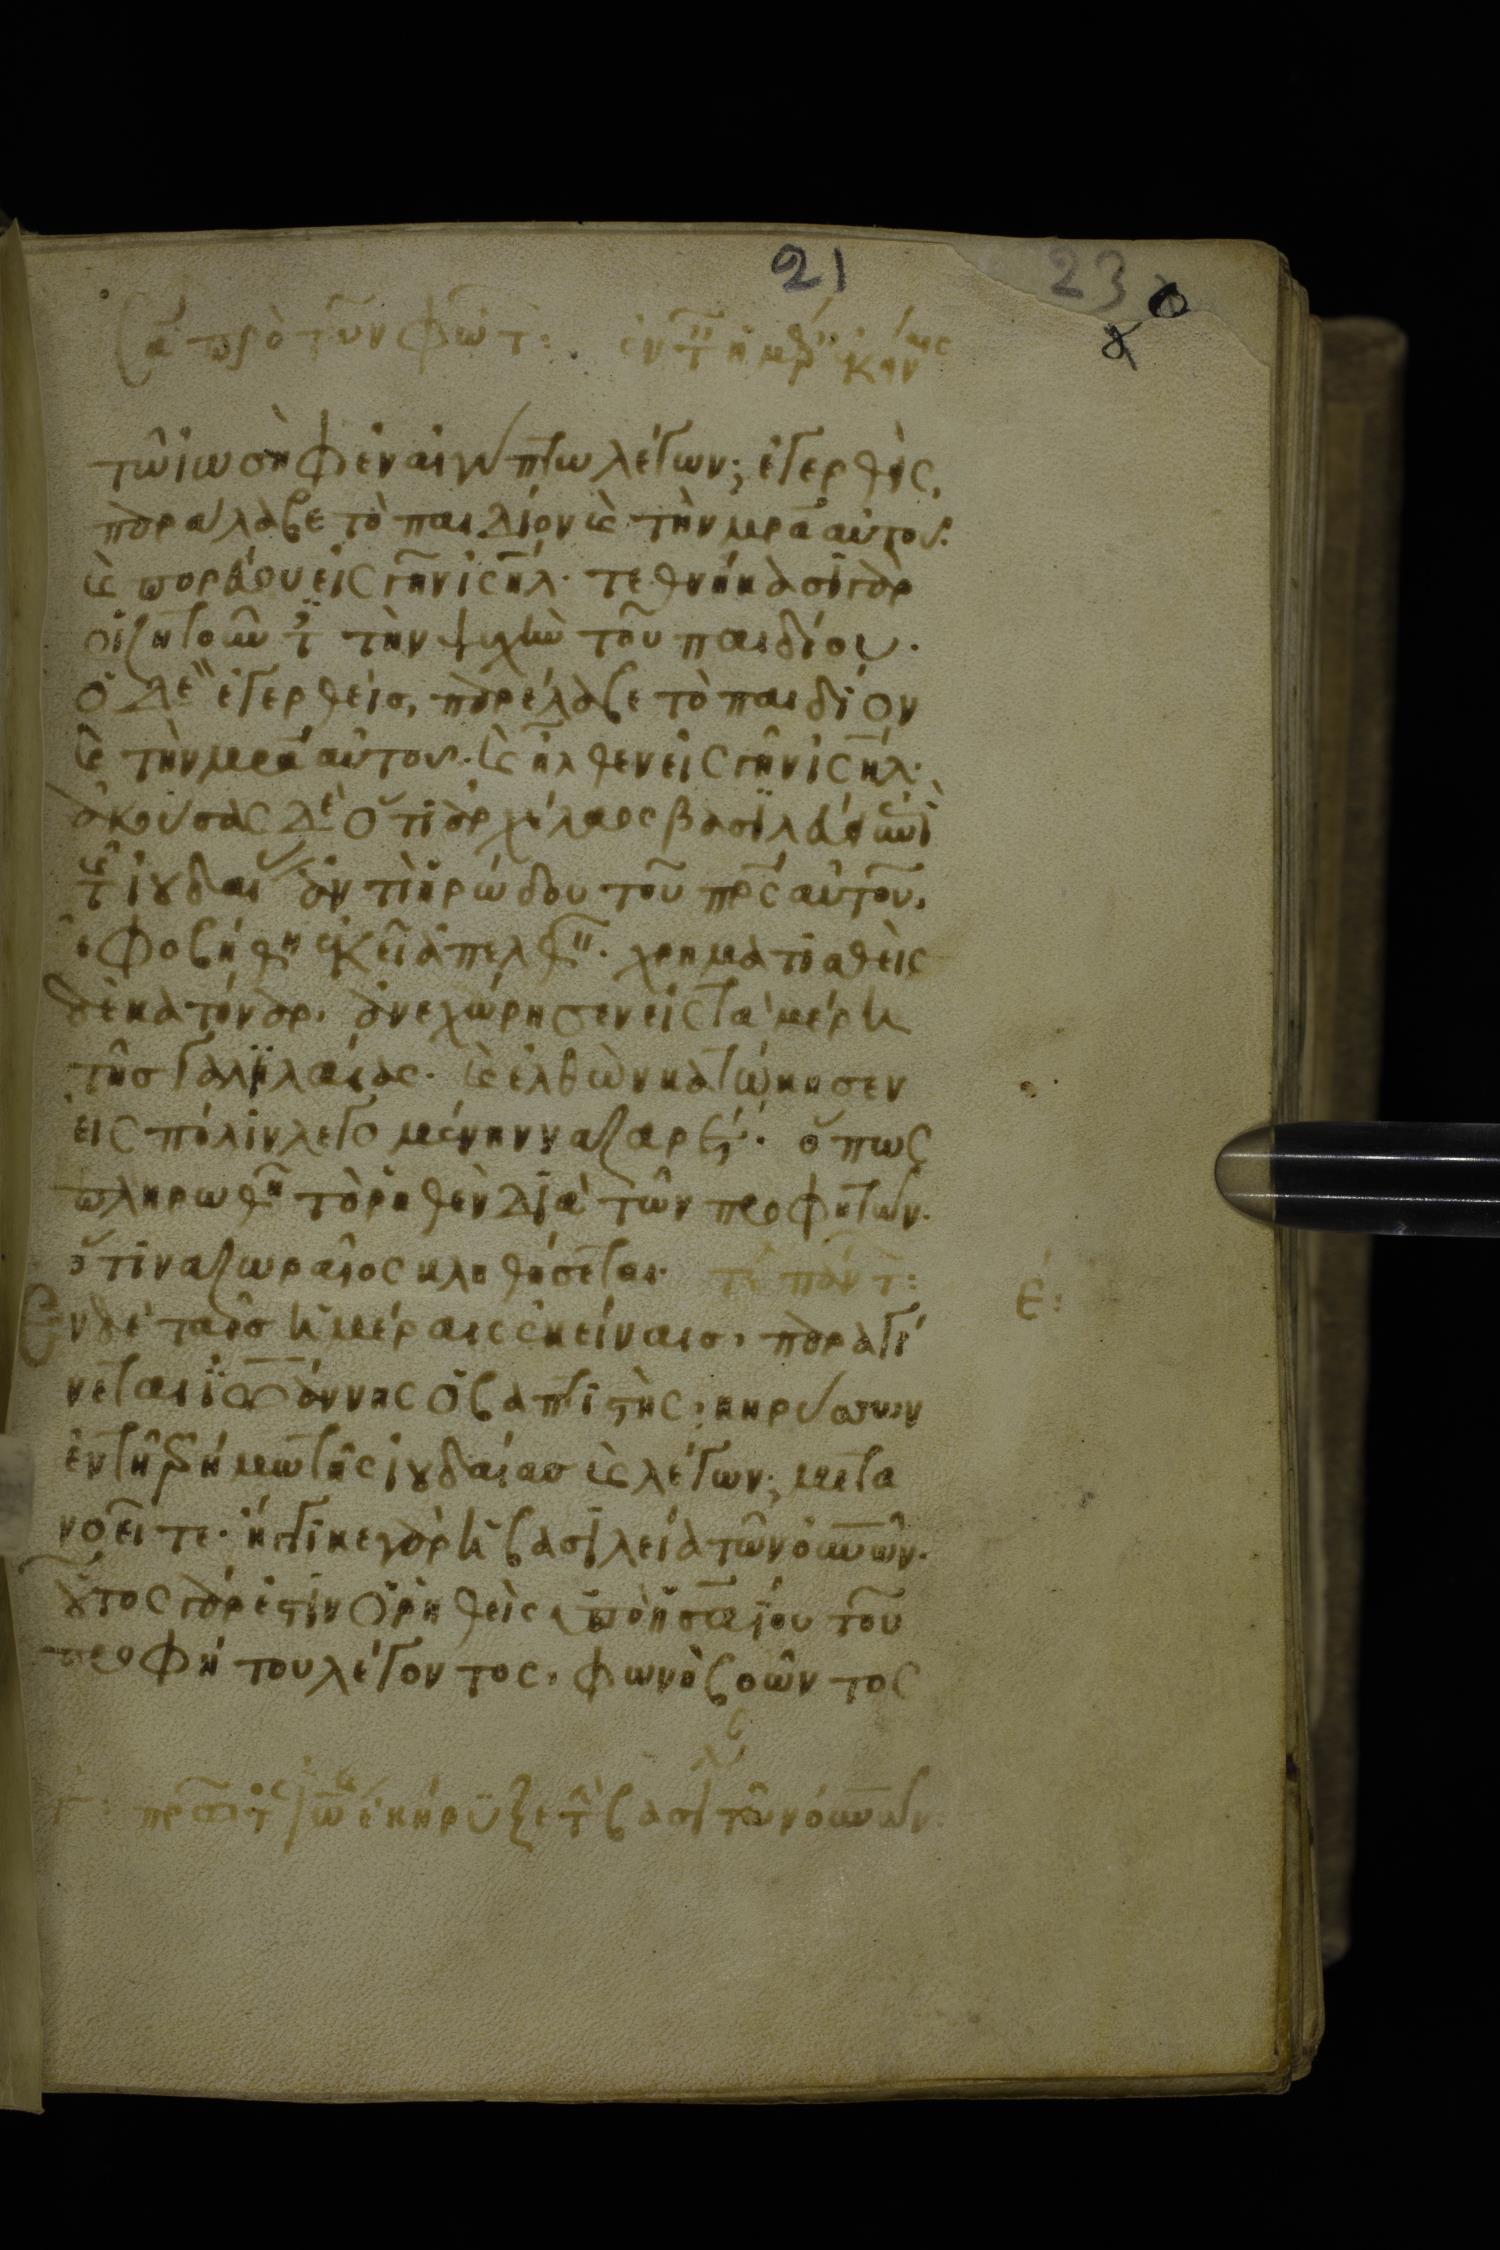 21 23
πρὸ τῶν φώτ: ἐν τ ἡμρ ἐκείν
τῶ ἰωσὴφ ἐν αἰγύπτω λέγων; ἐγερθεὶς,
παράλαβε τὸ παιδίον κ τὴν μρα αὐτοῦ.
κ πορεύου εἰς γῆν ἰσηλ. τεθνήκασι γὰρ
οἱ ζητοῦντες τὴν ψυχὴν τοῦ παιδίου.
ὁ δὲ ἐγερθεὶς, παρέλαβε τὸ παιδίον
κ τὴν μρα αὐτοῦ. κ ἦλθεν εἰς γῆν ἰσηλ.
ἀκούσας δὲ ὅτι ἀρχέλαος βασιλεύει ἐπὶ
τῆς ἰουδαίας ἀντὶ ἡρώδου τοῦ πρς αὐτοῦ,
ἐφοβήθη ἐκεῖ ἀπελθεῖν. χρηματισθεὶς
δὲ κατόναρ, ἀνεχώρησεν εἰς τὰ μέρη
τῆς γαλιλαίας. κ ἐλθὼν κατώκησεν
εἰς πόλιν λεγομένην ναζαρέτ. ὅπως
πληρωθῆ τὸ ῥηθὲν διὰ τῶν προφητῶν.
ὅτι ναζωραῖος κληθήσεται. τέ
Ἐν δὲ ταῖς ἡμέραις ἐκείναις, παραγί
νεται ἰωάννης ὁ βαπτιστὴς, κηρύσσων
ἐν τῆ ἐρήμω τῆς ἰουδαίας κ λέγων; μετα
νοεῖτε. ἤγγικε γὰρ ἡ βασιλεία τῶν οὐνῶν.
οὗτος γάρ ἐστιν ὁ ῥηθεὶς ὑπὸ ἠσαΐου τοῦ
προφήτου λέγοντος, φωνὴ βοῶντος
ἐκήρυξε τ βασι τῶν οὐνῶν: